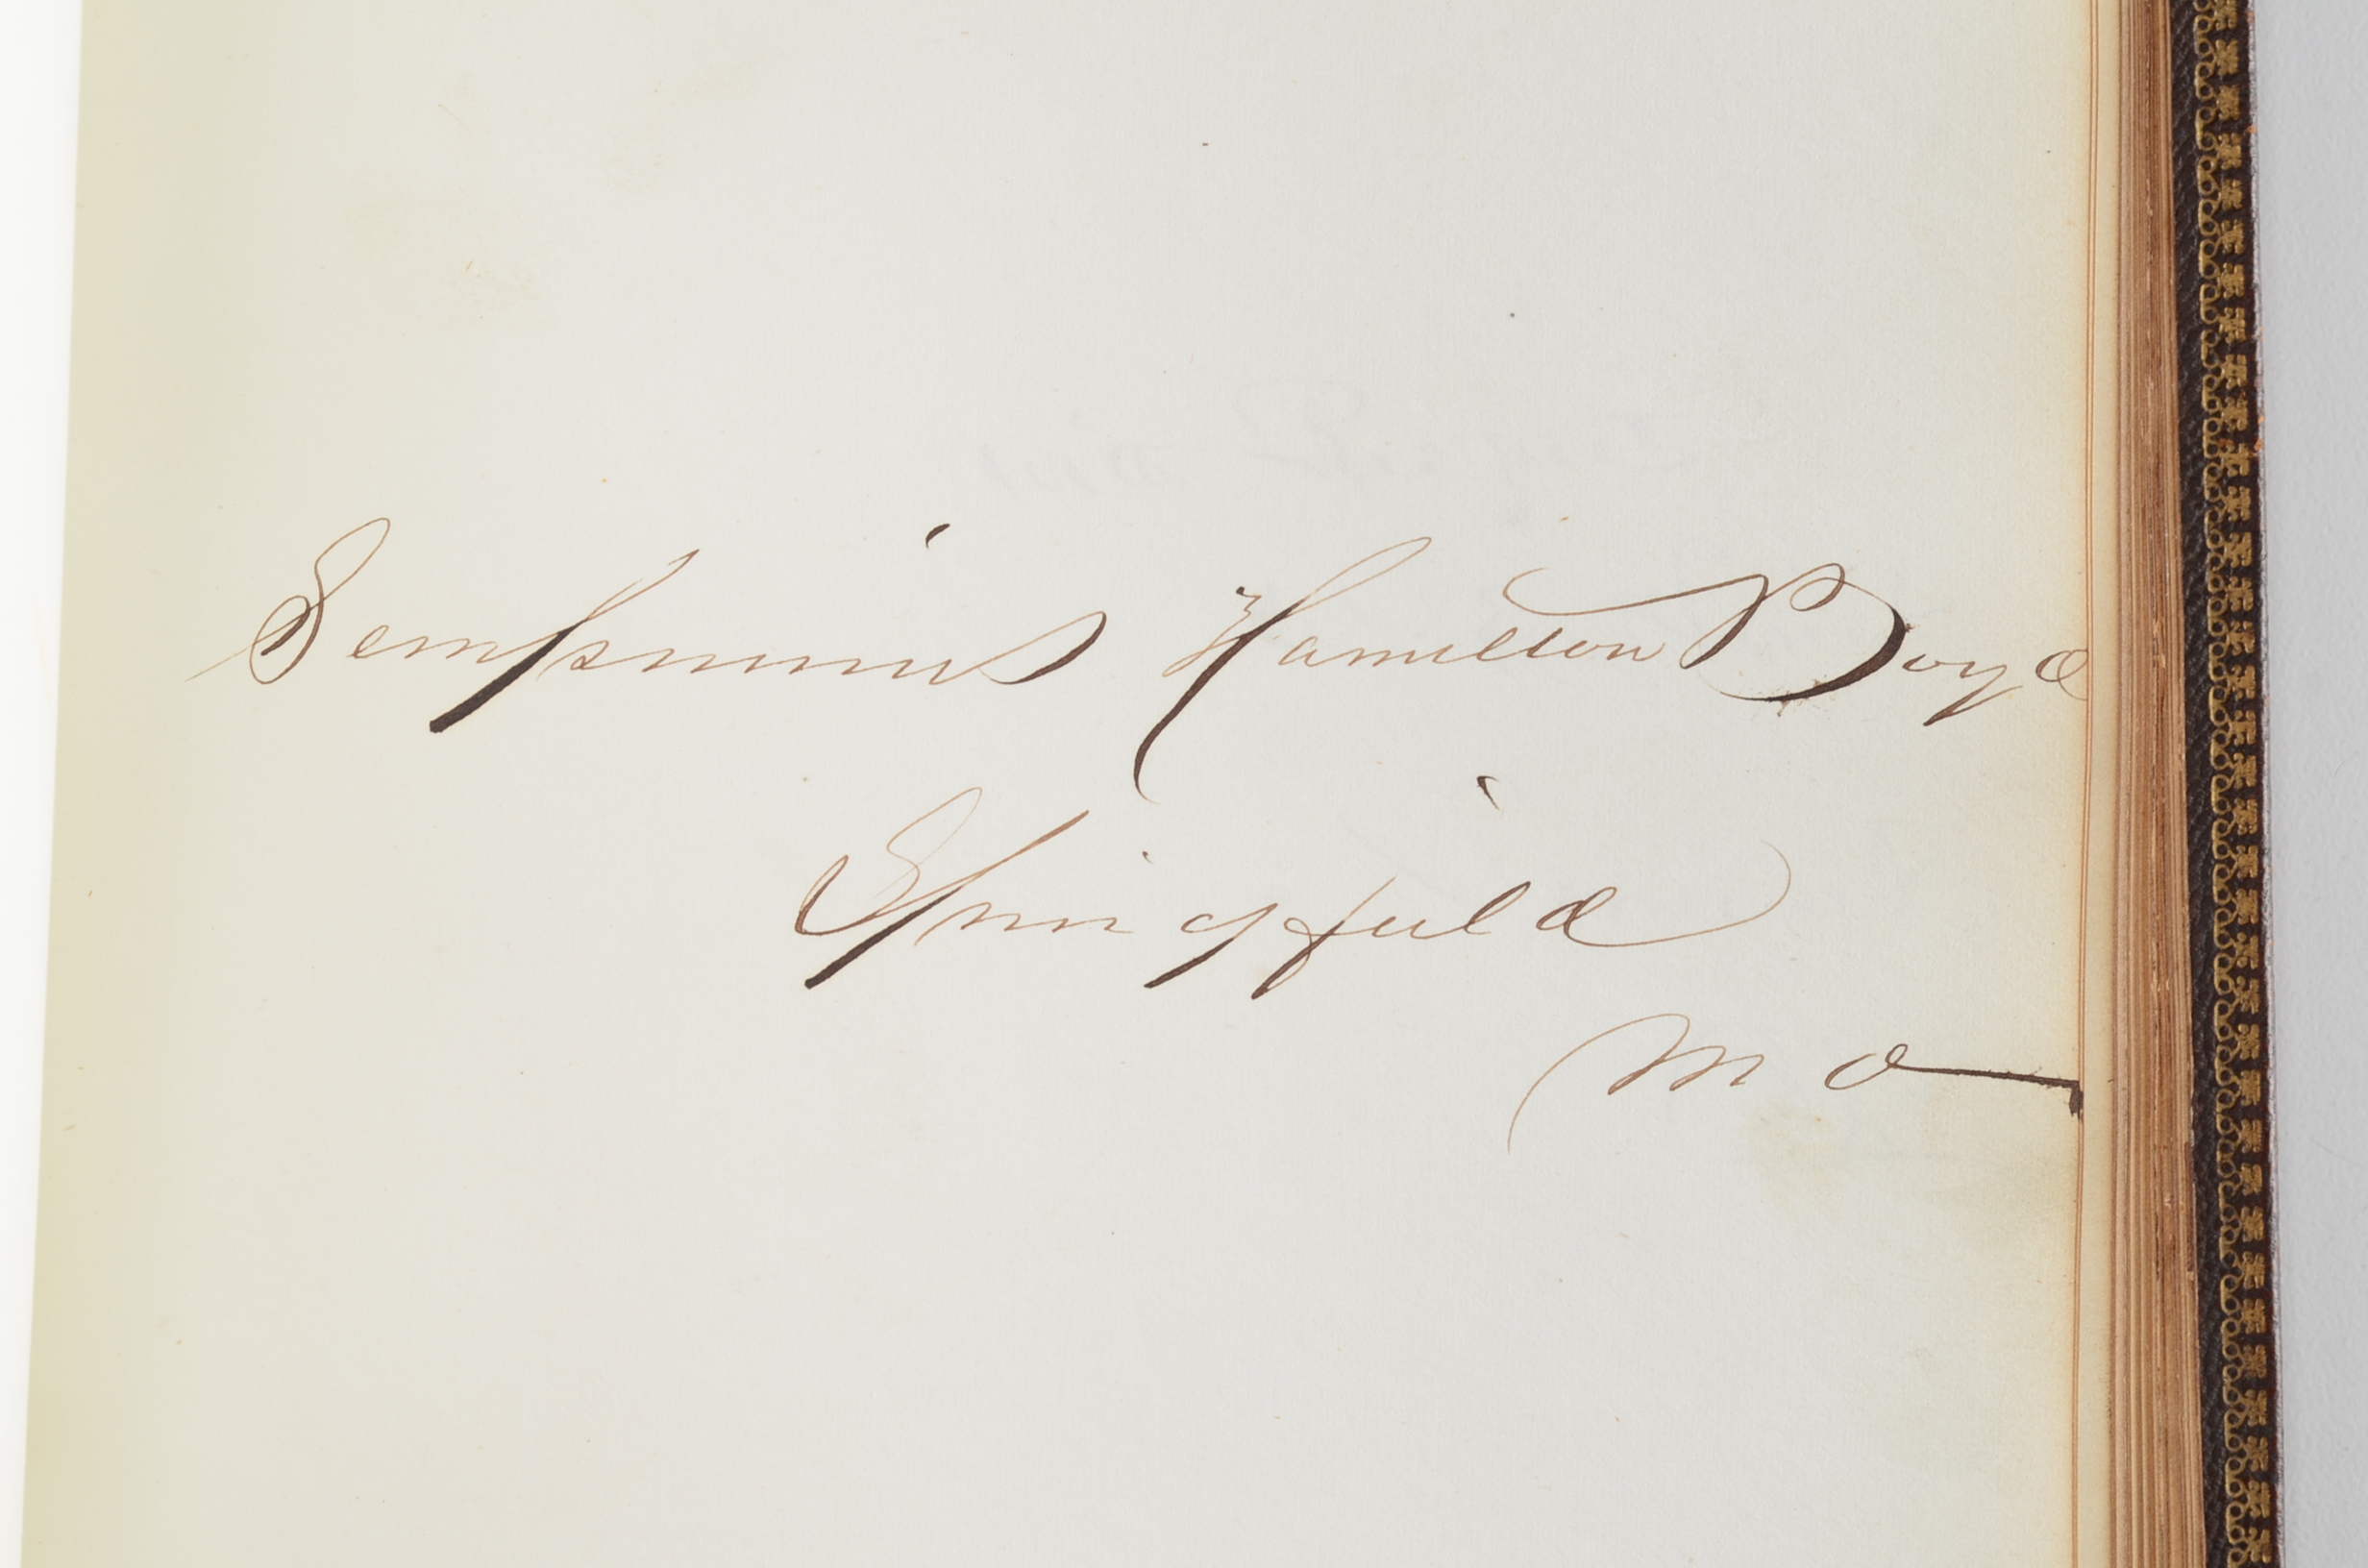 Sempronius Hamilton Boyd
Springfield
Mo